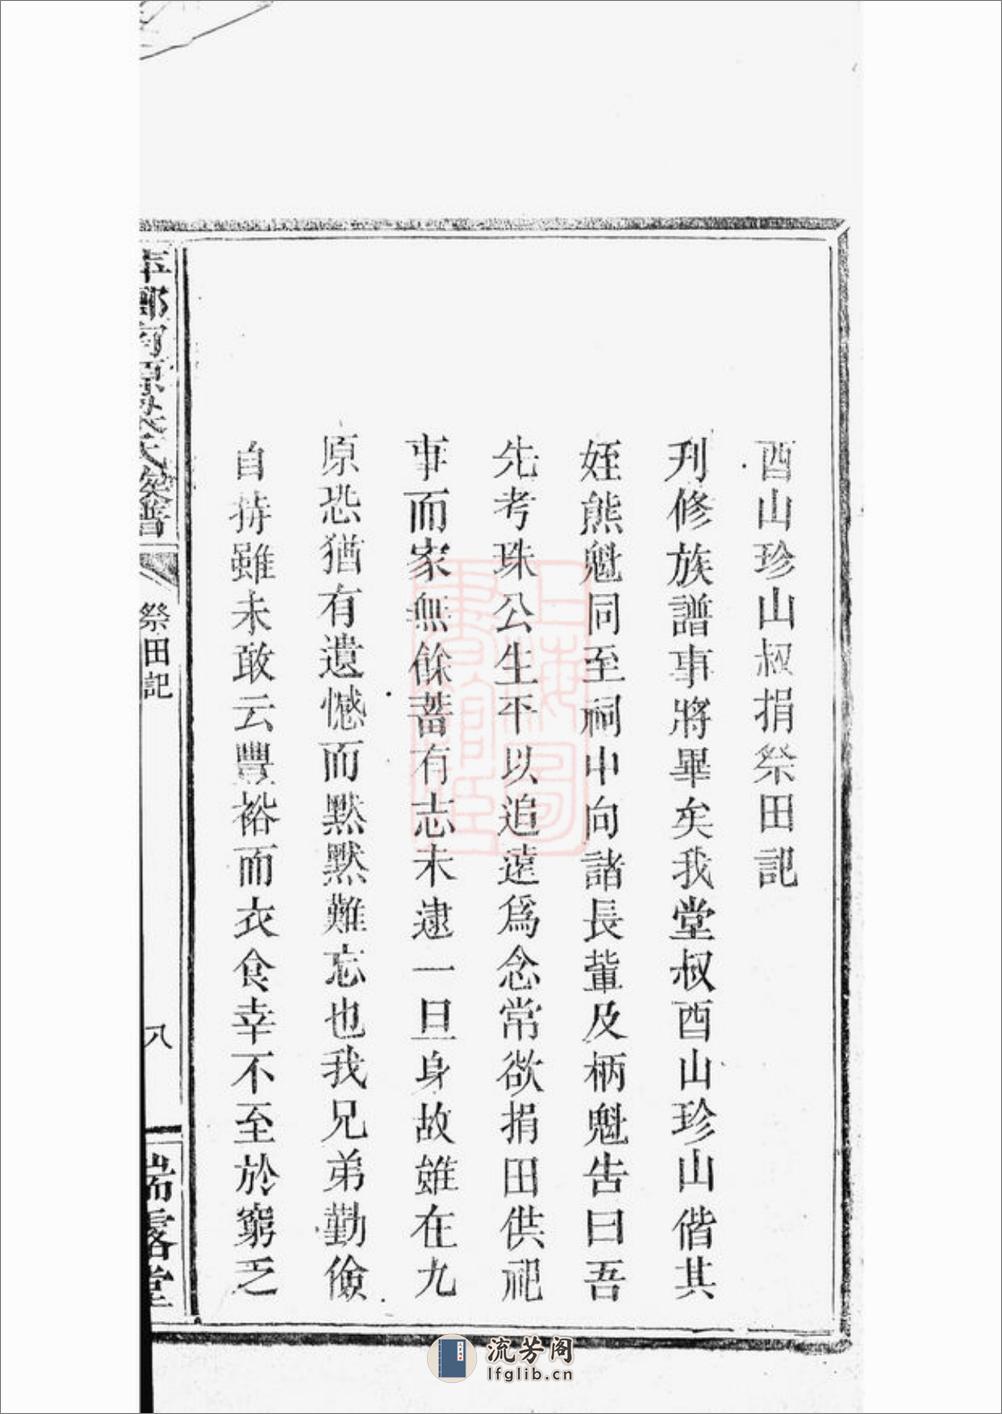 酉山珍山叔捐祭田記
刋修族譜事將畢矣我堂叔酉山珍山偕其
姪熊魁同至祠中向諸長輩及柄魁告曰吾
先考珠公生平以追遠爲念常欲捐田供祀
事而家無餘蓄有志未逮一旦身故雖在九
原恐猶有遺憾而默默難忘也我兄弟勤儉
自持雖未敢云豐裕而衣食幸不至於窮乏
氏燬譜
祭田記
八
瑞露堂
上海圖書館藏
流芳阁
lfglib.cn